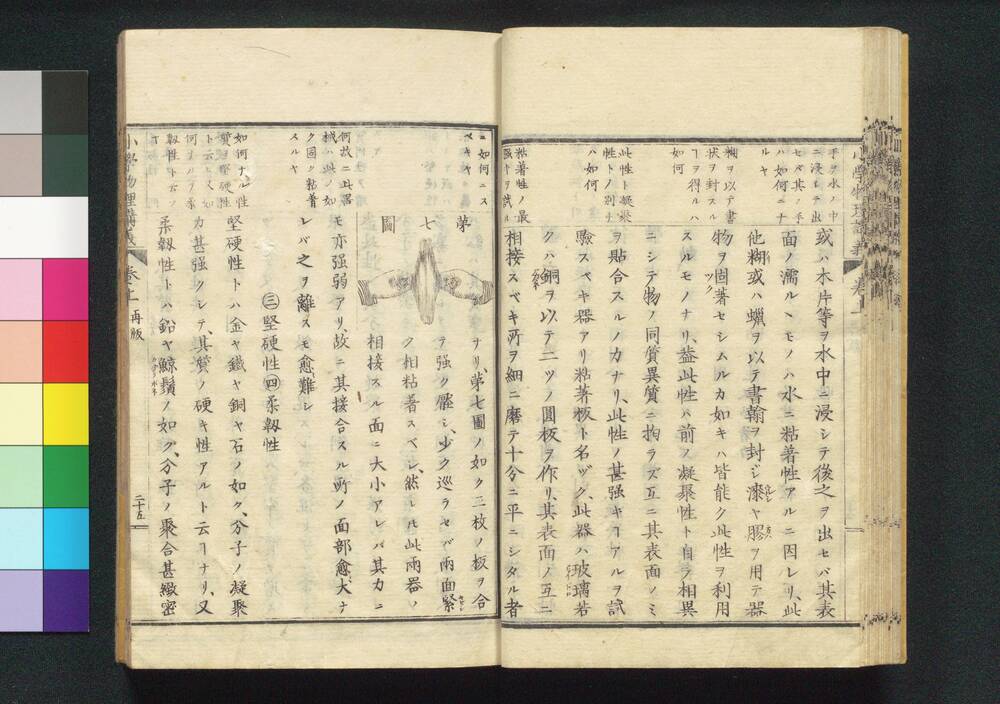 手ヲ水ノ中
ニ浸シテ出
セバ其ノ手
ハ如何ニナ
ルヤ
糊ヲ以テ書
状ヲ封スル
ヿヲ得ルハ
如何
此性ト凝聚
性トノ別ナ
ハ如何
粘着性ノ最
强キヲ試ル
或ハ木片等ヲ水中ニ浸シテ後之ヲ出セバ其表
面ノ濡ルヽモノハ水ニ粘著性アルニ因レリ、此
他糊或ハ蠟ヲ以テ書翰ヲ封ジ漆ヤ膠ヲ用テ器
物ヲ固著セシムルカ如キハ皆能ク此性ヲ利用
スルモノナリ、蓋此性ハ前ノ凝聚性ト自ラ相異
ニシテ物ノ同質異質ニ拘ラズ互ニ其表面ノミ
ヲ貼合スルノカナリ、此性ノ甚强キヿアルヲ試
驗スベキ器アリ粘著板ト名ヅク、此器ハ玻璃若
クハ銅ヲ以テ二ツノ圓板ヲ作リ、其表面ノ互ニ
相接スベキ所ヲ細ニ磨テ十分ニ平ニシタル者
ニ如何ニス
ベキヤ
何故ニ此器
械ハ此ノ如
ク固ク粘着
スルヤ
如何ナル性
質ヲ堅硬性
ト云ヒ又如
何ナルヲ柔
靱性ト云フ
ヿ
ナリ、第七圖ノ如ク三枚ノ板ヲ合
テ强ク壓シ、少ク巡ラセバ兩面緊
ク相粘着スベシ、然レル此兩器ノ
相接スル面ニ大小アレバ其カニ
第七圖
モ亦强弱アリ、故ニ其接合スル所ノ面部愈大ナ
レバ之ヲ離スモ愈難シ
㊂堅硬性㊃柔靱性
堅硬性トハ金ヤ鐵ヤ銅ヤ石ノ如ク、分子ノ凝聚
カ甚强クシテ、其質ノ硬キ性アルト云ヿナリ、又
柔靱性トハ鉛ヤ鯨鬚ノ如ク、分子ノ聚合甚緻密
小學物理講義 卷上 再版
二十五